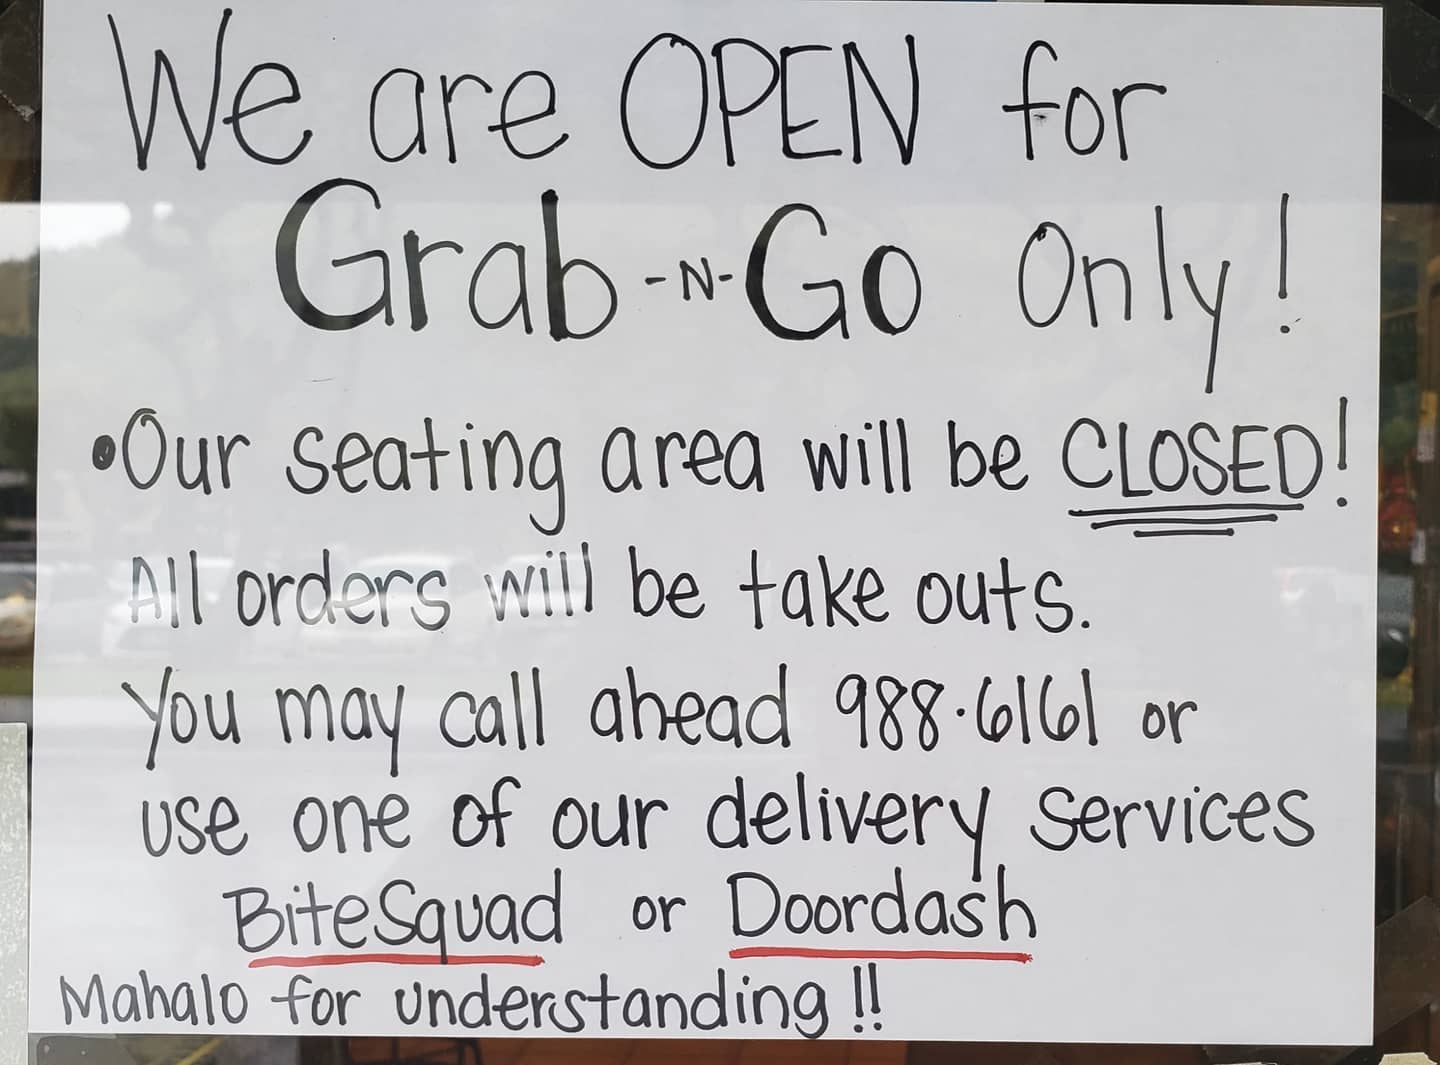 We are OPEN for
Grab-N-Go Only!
•Our seating area will be CLOSED!
All orders will be take outs.
You may call ahead 988·6161 or
use one of our delivery services
BiteSquad or Doordash
Mahalo for understanding!!